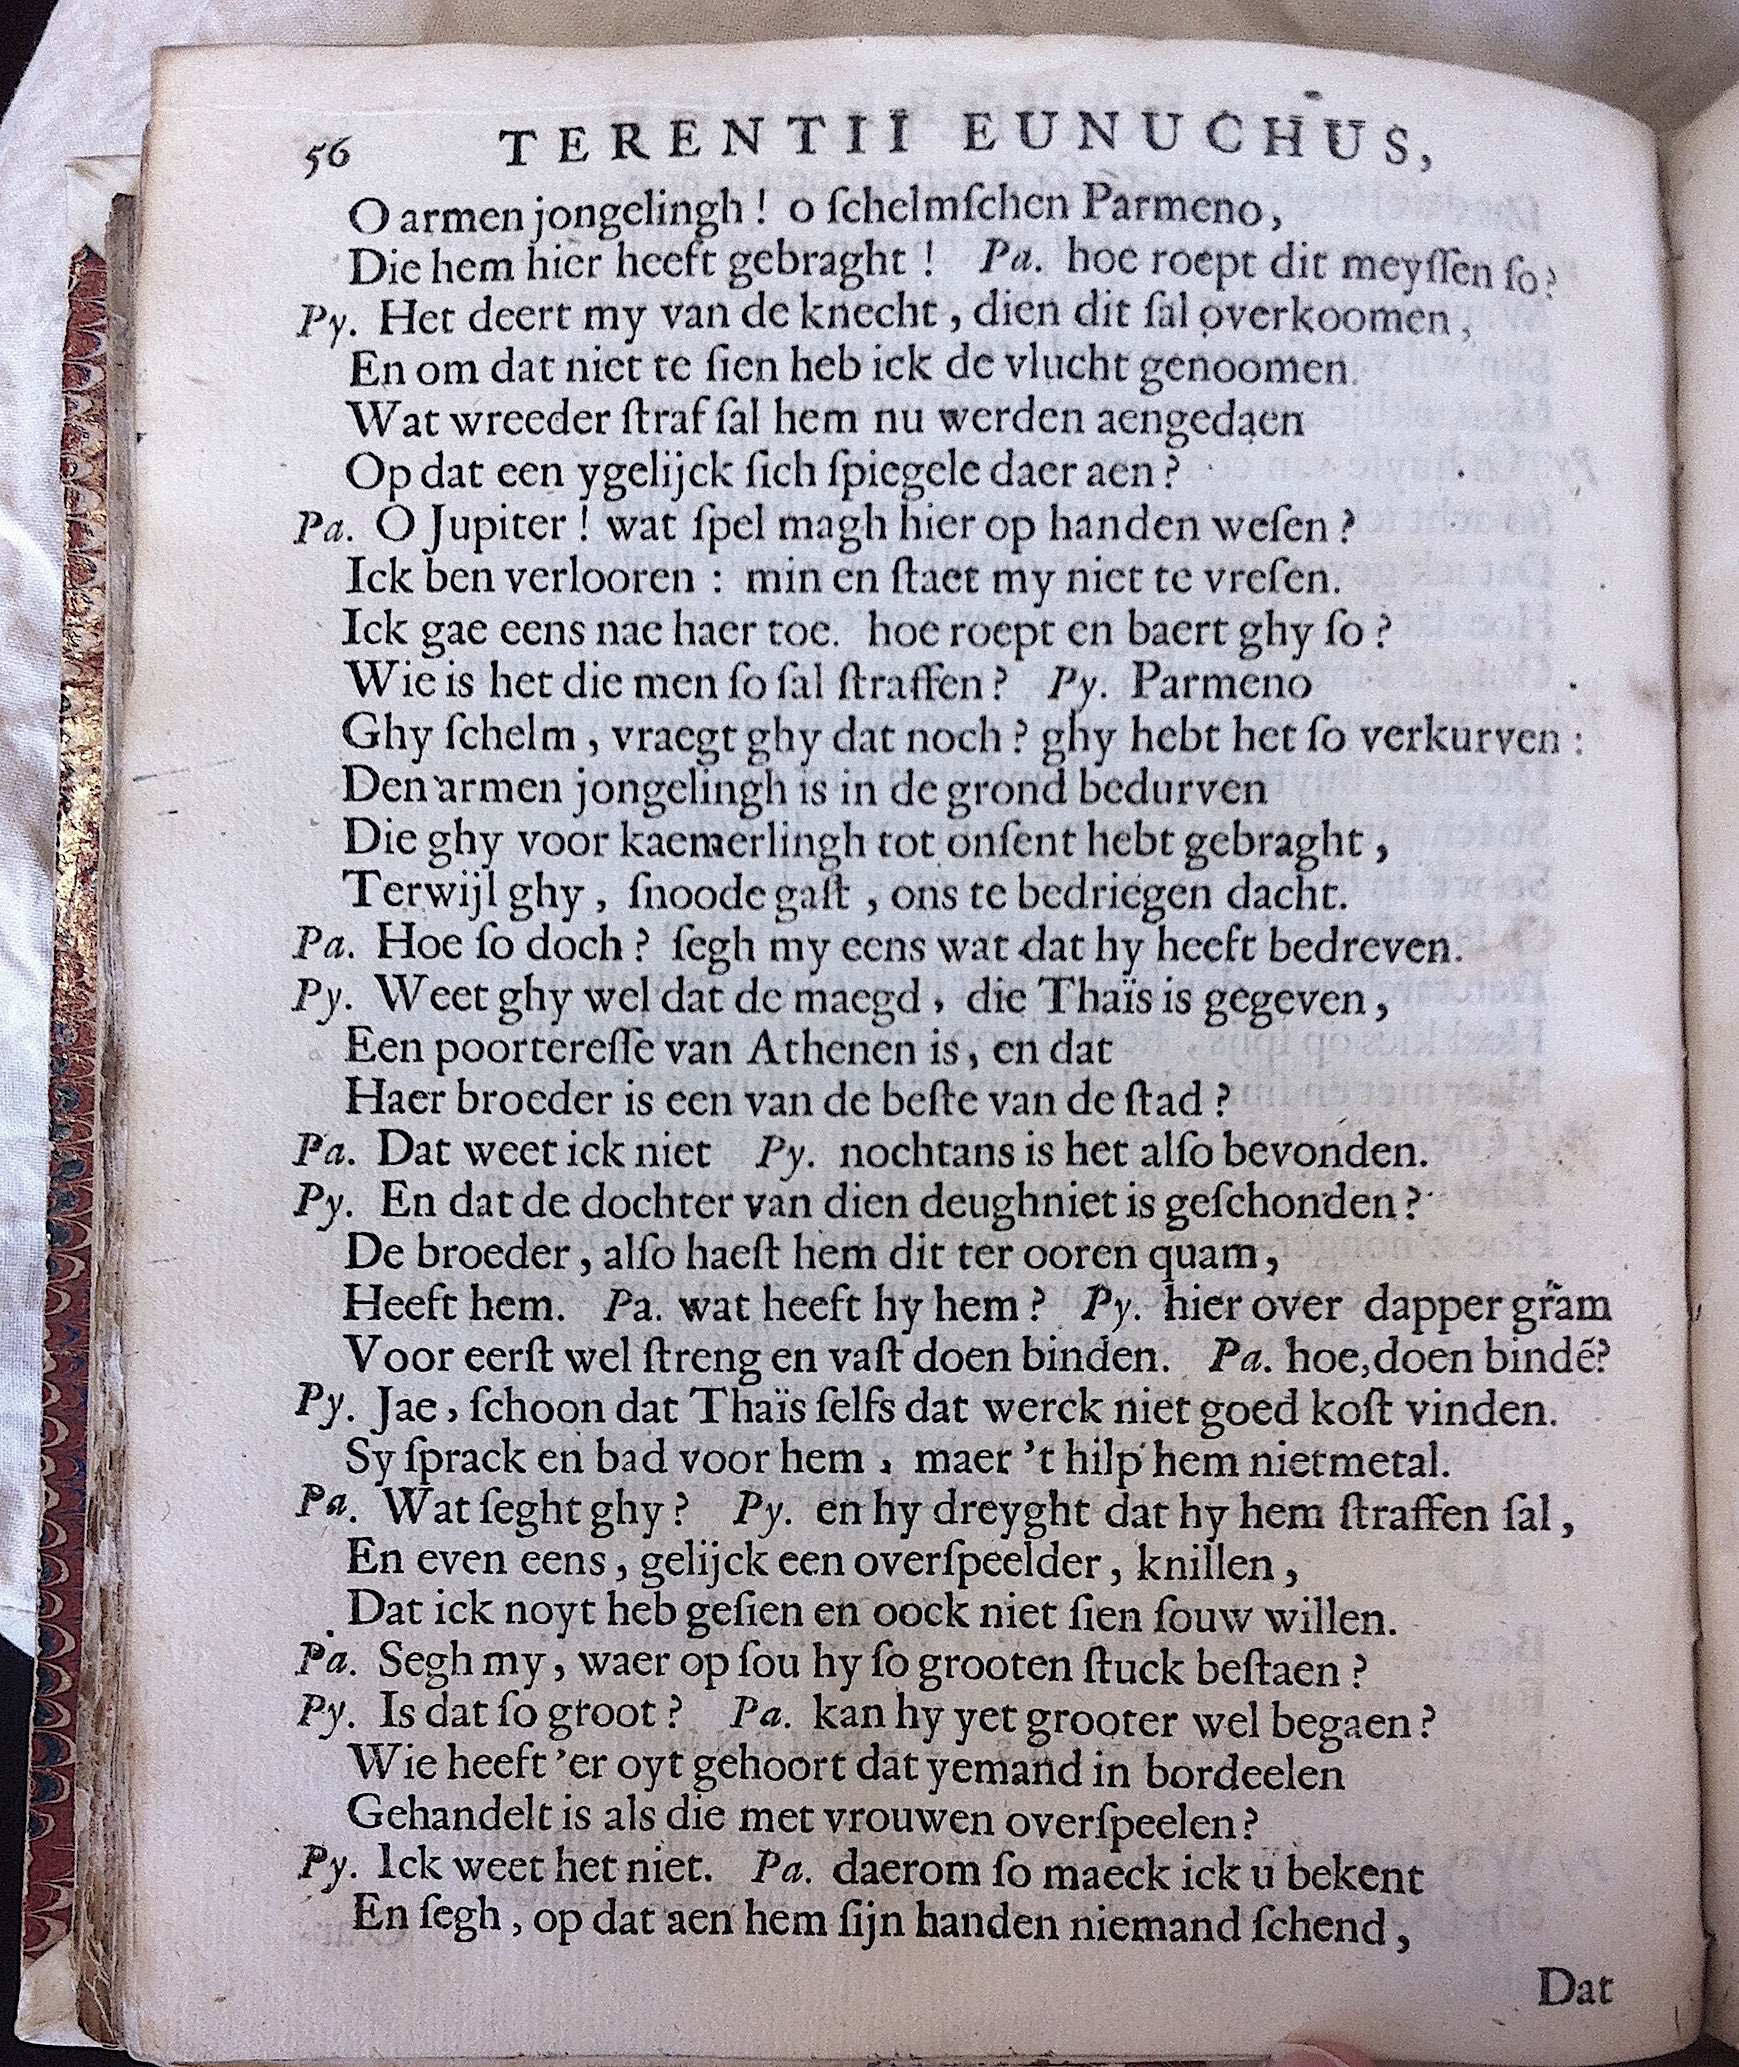 56 TERENTII EUNUCHUS,
O armen jongelingh! o ſchelmſchen Parmeno,
Die hem hier heeft gebraght! Pa. hoe roept dit meyſſen ſo?
Py. Het deert my van de knecht, dien dit ſal overkoomen,
En om dat niet te ſien heb ick de vlucht genoomen.
Wat wreeder ſtraf ſal hem nu werden aengedaen
Op dat een ygelijck ſich ſpiegele daer aen?
Pa. O Jupiter! wat ſpel magh hier op handen weſen?
Ick ben verlooren: min en ſtaet my niet te vreſen.
Ick gae eens nae haer toe. hoe roept en baert ghy ſo?
Wie is het die men ſo ſal ſtraffen? Py. Parmeno
Ghy ſchelm, vraegt ghy dat noch? ghy hebt het ſo verkurven:
Den armen jongelingh is in de grond bedurven
Die ghy voor kaemerlingh tot onſent hebt gebraght,
Terwijl ghy, ſnoode gaſt, ons te bedriegen dacht.
Pa. Hoe ſo doch? ſegh my eens wat dat hy heeft bedreven.
Py. Weet ghy wel dat de maegd, die Thaïs is gegeven,
Een poortereſſe van Athenen is, en dat
Haer broeder is een van de beſte van de ſtad?
Pa. Dat weet ick niet Py. nochtans is het alſo bevonden.
Py. En dat de dochter van dien deughniet is geſchonden?
De broeder, alſo haeſt hem dit ter ooren quam,
Heeft hem. Pa. wat heeft hy hem? Py. hier over dapper gram
Voor eerſt wel ſtreng en vaſt doen binden. Pa. hoe, doen bindē?
Py. Jae, ſchoon dat Thaïs ſelfs dat werck niet goed koſt vinden.
Sy ſprack en bad voor hem, maer 't hilp hem niet metal.
Pa. Wat ſeght ghy? Py. en hy dreyght dat hy hem ſtraffen ſal,
En even eens, gelijck een overſpeelder, knillen,
Dat ick noyt heb geſien en oock niet ſien ſouw willen.
Pa. Segh my, waer op ſou hy ſo grooten ſtuck beſtaen?
Py. Is dat ſo groot? Pa. kan hy yet grooter wel begaen?
Wie heeft 'er oyt gehoort dat yemand in bordeelen
Gehandelt is als die met vrouwen overſpeelen?
Py. Ick weet het niet. Pa. daerom ſo maeck ick u bekent
En ſegh, op dat aen hem ſijn handen niemand ſchend,
Dat